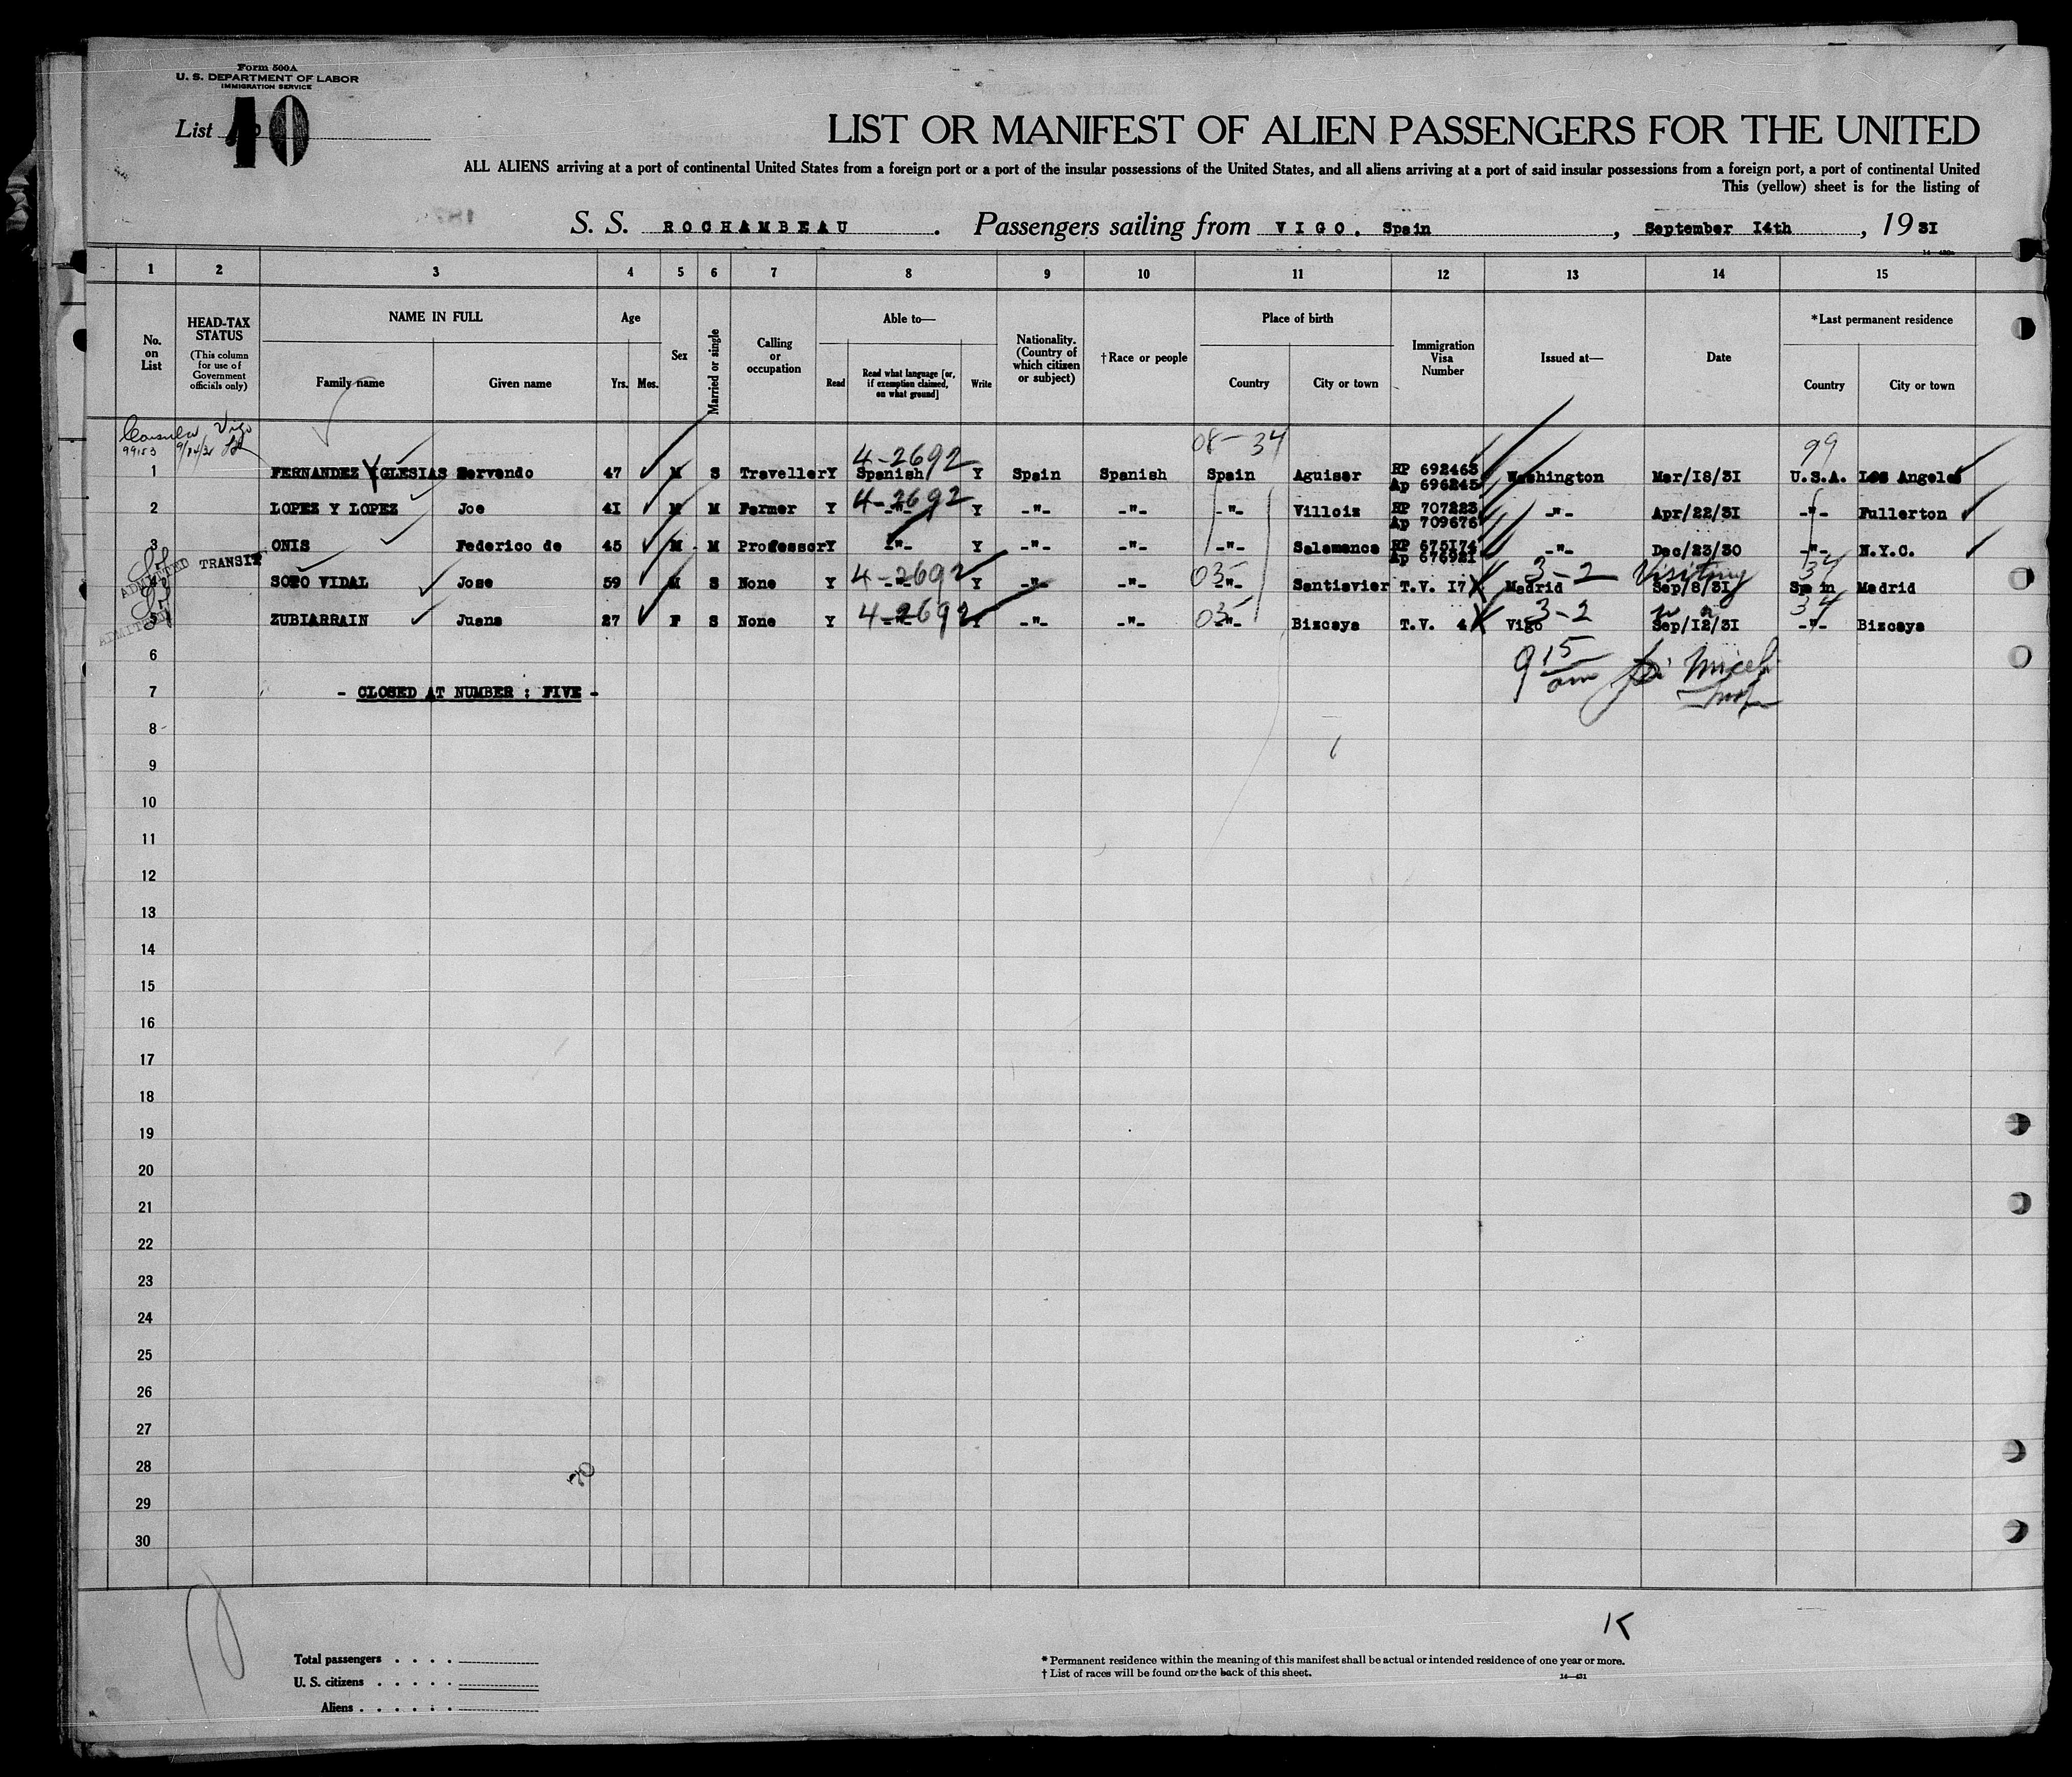 Form 500A
U. S. DEPARTMENT OF LABOR
IMMIGRATION SERVICE
List 10
LIST OR MANIFEST OF ALIEN PASSENGERS FOR THE UNITED
ALL ALIENS arriving at a port of continental United States from a foreign port or a port of the insular possessions of the United States, and all aliens arriving at a port of said insular possessions from a foreign port, a port of continental United
This (yellow) sheet is for the listing of
S. S. ROCHAMBEAU . Passengers sailing from VIGO. Spain , September I4th , 19 3I
1 2 3 4 5 6 7 8 9 10 11 12 13 14 15
No. on List
HEAD-TAX STATUS (This column for use of Government officials only)
NAME IN FULL
Family name Given name
Age
Yrs. Mos.
Sex
Married or single
Calling or occupation
Able to—
Read
Read what language [or, if exemption claimed, on what ground]
Write
Nationality. (Country of which citizen or subject)
†Race or people
Place of birth
Country City or town
Immigration Visa Number
Issued at—
Date
*Last permanent residence
Country City or town
Vigo
99153 9/14/31
08-34 99
4-2692
1 FERNANDEZ Y IGLESIAS Servando 47 M S Traveller Y Spanish Y Spain Spanish Spain Aguiser RP 692463 Ap 696245 Washington Mar/I8/3I U.S.A. Los Angeles
4-2692
2 LOPEZ Y LOPEZ Joe 4I M M Farmer Y -"- Y -"- -"- -"- Villois RP 707223 Ap 709676 -"- Apr/22/3I -"- Fullerton
3 ONIS Federico de 45 M M Professor Y -"- Y -"- -"- -"- Salamanca RP 675174 Ap 676921 -"- Dec/23/30 -"- N.Y.C.
ADMITTED TRANSIT
4-2692 03- 3-2 Visiting 34
4 SOTO VIDAL Jose 59 M S None Y -"- Y -"- -"- -"- Santiavier T.V. I7 Madrid Sep/8/3I Spain Madrid
ADMITTED
4-2692 03- 3-2 34
5 ZUBIARRAIN Juana 27 F S None Y -"- Y -"- -"- -"- Bizcaya T.V. 4 Vigo Sep/I2/3I -"- Bizcaya
6
9 15 am
7 - CLOSED AT NUMBER : FIVE -
8
9
10
11
12
13
14
15
16
17
18
19
20
21
22
23
24
25
26
27
28
29
30
K
Total passengers . . . .
U. S. citizens . . . . .
Aliens . . . . . .
* Permanent residence within the meaning of this manifest shall be actual or intended residence of one year or more.
† List of races will be found on the back of this sheet.
14—431